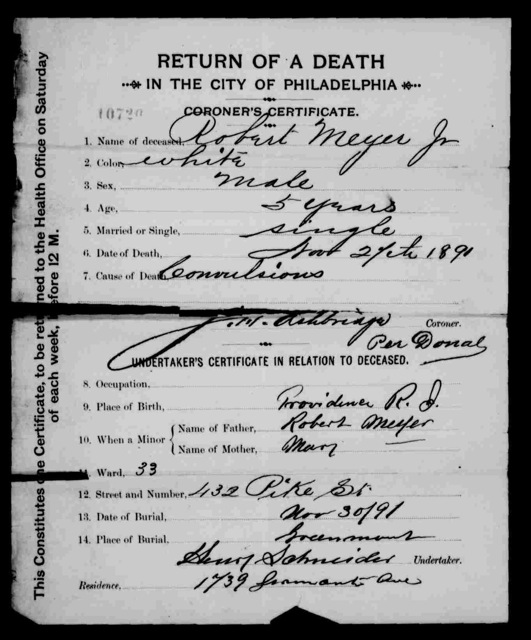 RETURN OF A DEATH
IN THE CITY OF PHILADELPHIA
10720
CORONER'S CERTIFICATE.
1. Name of deceased, Robert Meyer Jr
2. Color, white
3. Sex, male
4. Age, 5 years
5. Married or Single, single
6. Date of Death, Nov 27th 1891
7. Cause of Death, Convulsions
J. W. Ashbridge Coroner.
Per Donal
UNDERTAKER'S CERTIFICATE IN RELATION TO DECEASED.
8. Occupation,
9. Place of Birth, Providence R. I.
10. When a Minor { Name of Father, Robert Meyer
Name of Mother, Mary
11. Ward, 33
12. Street and Number, 432 Pike St.
13. Date of Burial, Nov 30/91
14. Place of Burial, Greenmount
Henry Schneider Undertaker.
Residence, 1739 Germant Ave
This Constitutes one Certificate, to be returned to the Health Office on Saturday
of each week, before 12 M.